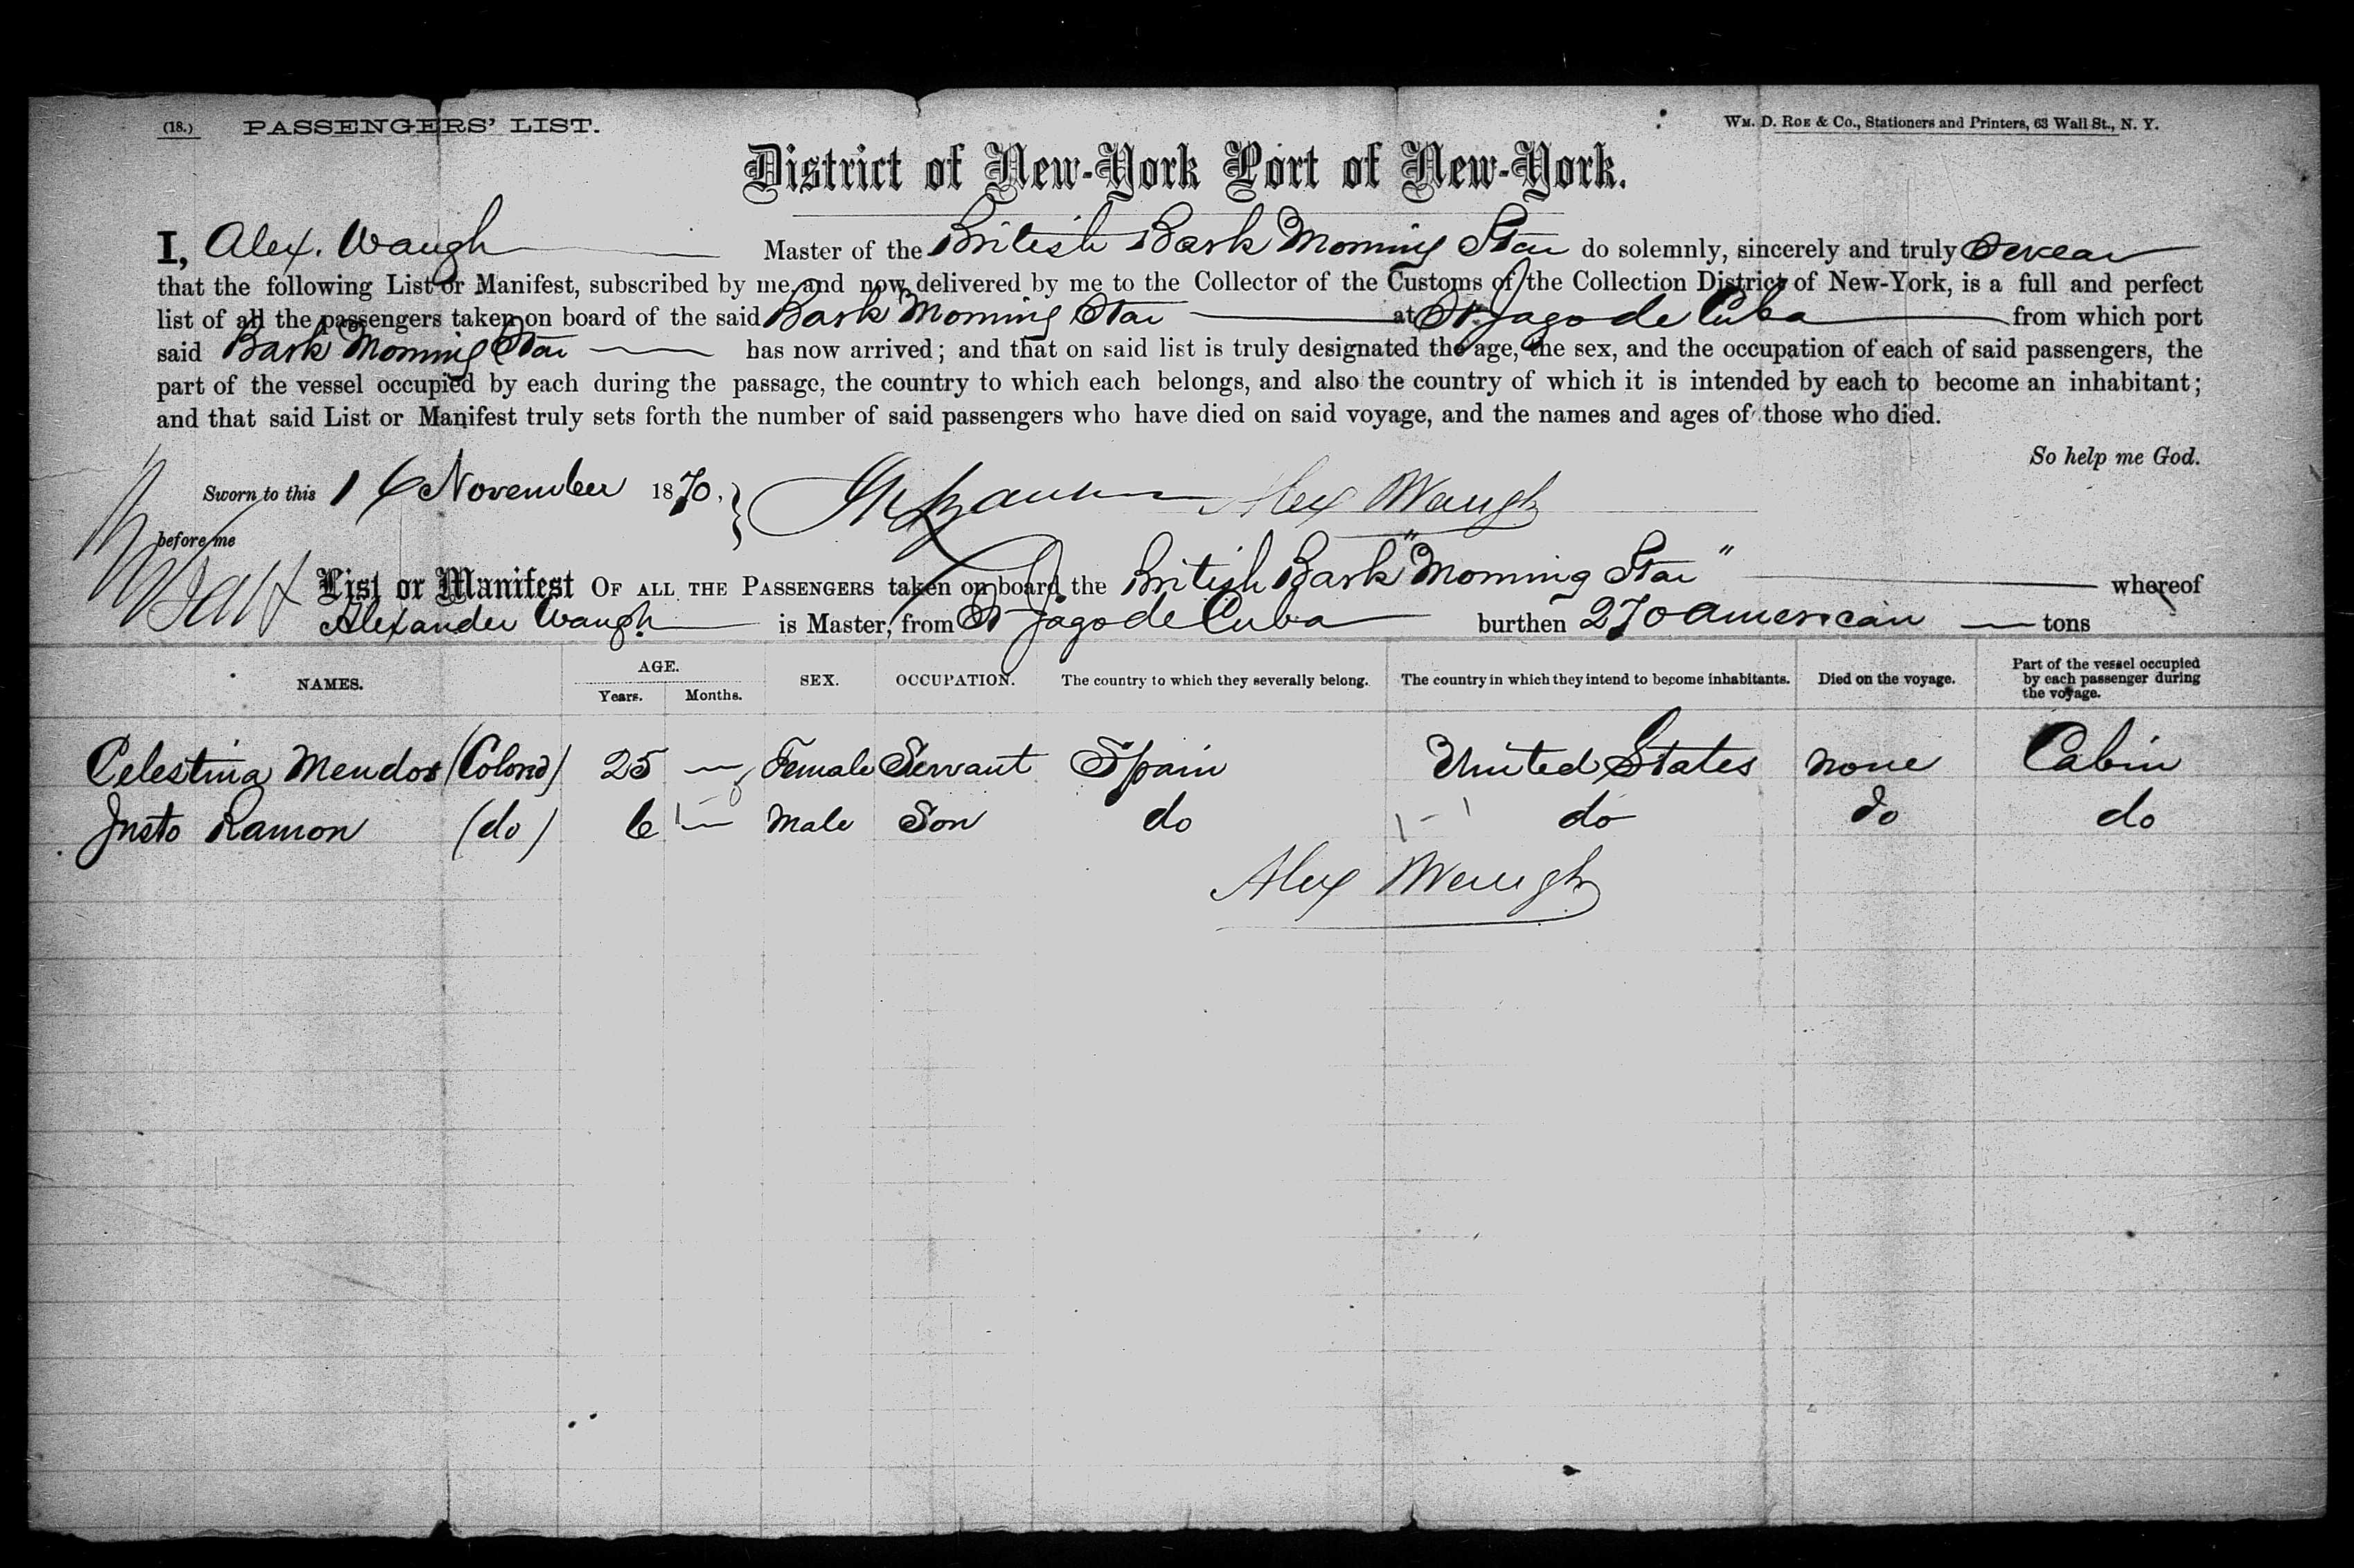 (18.) PASSENGERS' LIST. WM. D. ROE & Co., Stationers and Printers, 63 Wall St., N. Y.
District of New-York Port of New-York.
I, Alex. Waugh Master of the British Bark Morning Star do solemnly, sincerely and truly Swear
that the following List or Manifest, subscribed by me, and now delivered by me to the Collector of the Customs of the Collection District of New-York, is a full and perfect
list of all the passengers taken on board of the said Bark Morning Star at St. Jago de Cuba from which port
said Bark Morning Star has now arrived; and that on said list is truly designated the age, the sex, and the occupation of each of said passengers, the
part of the vessel occupied by each during the passage, the country to which each belongs, and also the country of which it is intended by each to become an inhabitant;
and that said List or Manifest truly sets forth the number of said passengers who have died on said voyage, and the names and ages of those who died.
So help me God.
Sworn to this 16 November 1870, Alex Waugh
before me
List or Manifest OF ALL THE PASSENGERS taken on board the British Bark "Morning Star" whereof
Alexander Waugh is Master, from St Jago de Cuba burthen 270 american tons
NAMES. AGE. Years. Months. SEX. OCCUPATION. The country to which they severally belong. The country in which they intend to become inhabitants. Died on the voyage. Part of the vessel occupied by each passenger during the voyage.
Celestina Mendos (Colored) 25 — Female Servant Spain United States none Cabin
Justo Ramon (do) 6 — Male Son do do do do
Alex Waugh